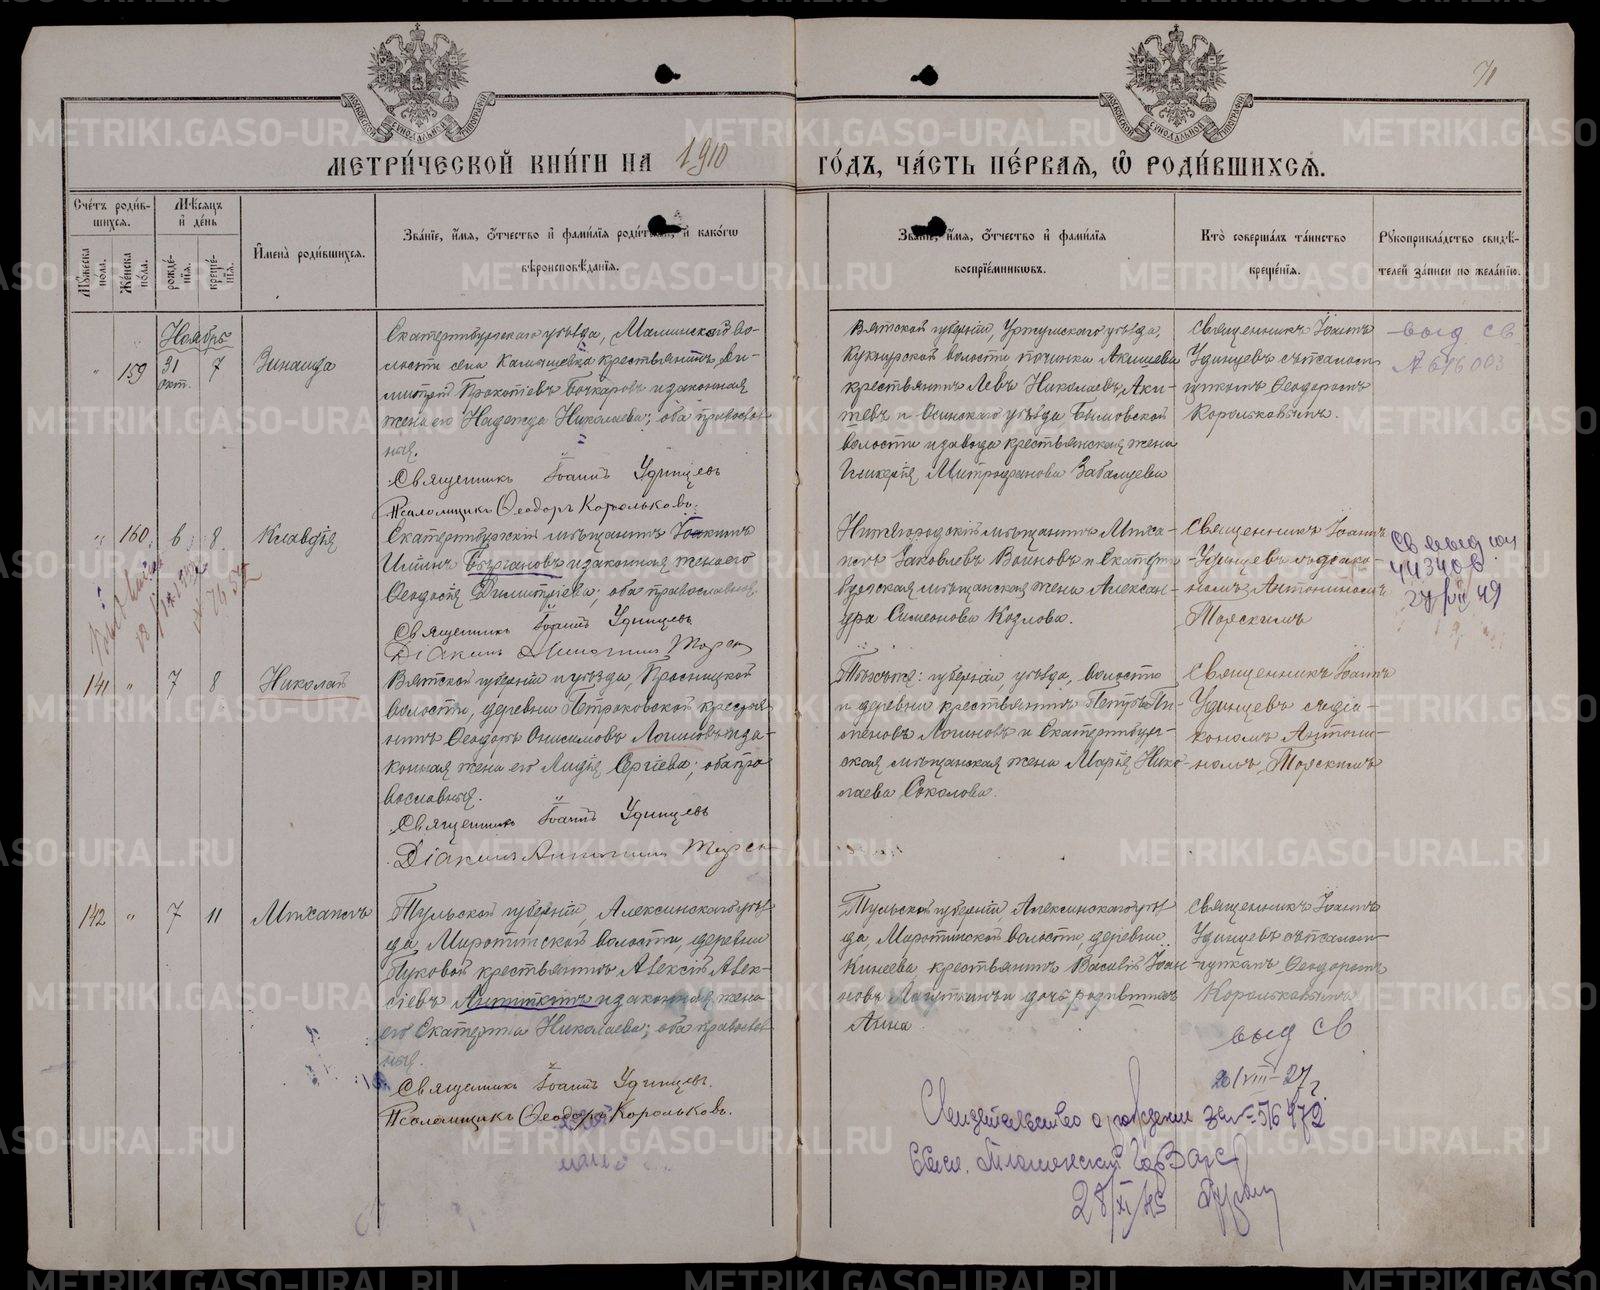 71
МЕТРИ́ЧЕСКОЙ КНИ́ГИ НА 1910 ГО́ДЪ, ЧА́СТЬ ПЕ́РВАѦ, Ѽ РОДИ́ВШИХСѦ.
Сче́тъ роди́в-шихся.
Мѣсяцъ и҆ де́нь
Мꙋ́жеска по́ла.
Же́нска по́ла.
рожде́-нїѧ.
креще́-нїѧ.
И҆мена̀ роди́вшихсѧ.
Зва́нїе, и҆́мѧ, ѻ҆́тчество и҆ фами́лїѧ роди́телей, и҆ како́гѡ
вѣроисповѣ́данїѧ.
Зва́нїе, и҆́мѧ, ѻ҆́тчество и҆ фами́лїѧ
воспрїе́мникѡвъ.
Кто̀ соверша́лъ та́инство
креще́нїѧ.
Рꙋкоприкла́дство свидѣ́-
телей за́писи по жела́нїю.
Ноябрь
" 159 31 окт. 7 Зинаида
Екатеринбургскаго уѣзда, Маминской во-
лости села Камышевка крестьянинъ Ди-
митрій Прокопіевъ Бочкаровъ и законная
жена его Надежда Николаева; оба православ-
ныя.
Священникъ Іоаннъ Удинцевъ
Псаломщикъ Ѳеодоръ Корольковъ.
Вятской губерніи, Уржумскаго уѣзда,
Кукнурской волости починка Акишева
крестьянинъ Левъ Николаевъ Аки-
шевъ и Осинскаго уѣзда Бымовской
волости и завода крестьянская жена
Гликерія Митрофанова Забалуева
Священникъ Іоаннъ
Удинцевъ съ псалом-
щикомъ Ѳеодоромъ
Корольковымъ.
выд св
" 160. 6 8 Клавдія
Екатеринбургскій мѣщанинъ Іоакимъ
Ильинъ и законная жена его
Ѳеодосія Димитріева; оба православныя.
Священникъ Іоаннъ Удинцевъ
Діаконъ
Нижегородскій мѣщанинъ Миха-
илъ Іаковлевъ Воиновъ и Екатерин-
бургская мѣщанская жена Алексан-
дра Симеонова Козлова.
Священникъ Іоаннъ
Удинцевъ съ діако-
номъ Антониномъ
Торскимъ
141 " 7 8 Николай
Вятской губерніи и уѣзда, Просницкой
волости, деревни Петроковской крестья-
нинъ Ѳеодотъ Онисимовъ Логиновъ и за-
конная жена его Лидія Сергіева; оба пра-
вославныя.
Священникъ Іоаннъ Удинцевъ
Діаконъ Антонинъ
Тѣхъже: губерніи, уѣзда, волости
и деревни крестьянинъ
Логиновъ и Екатеринбург-
ская мѣщанская жена Марія Нико-
лаева Соколова.
Священникъ Іоаннъ
Удинцевъ съ діа-
кономъ Антони-
номъ Торскимъ
142 " 7 11 Михаилъ
Тульской губерніи, Алексинскаго уѣз-
да, Миротинской волости, деревни
крестьянинъ Алексій Алек-
сіевъ и законная жена
его Екатерина Николаева; оба православ-
ныя.
Священникъ Іоаннъ Удинцевъ.
Псаломщикъ Ѳеодоръ Корольковъ.
Тульской губерніи, Алексинскаго уѣз-
да, Миротинской волости, деревни
Кинеева, крестьянинъ Василій Іоан-
новъ и дочь родившихъ
Анна.
Священникъ Іоаннъ
Удинцевъ съ псалом-
щикомъ Ѳеодоромъ
Корольковымъ
выд св
Свидетельство о рождении
28/XI/45
METRIKI.GASO-URAL.RU